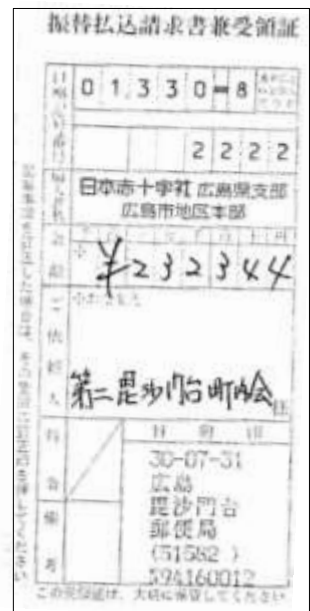 振替払込請求書兼受領証
01330-8
2222
日本赤十字社 広島県支部
広島市地区本部
金額
¥232344
ご依頼人
第二毘沙門台町内会 様
料金
備考
日附印
30-07-31
広島
毘沙門台
郵便局
(51582 )
594160012
この受領証は、大切に保管してください